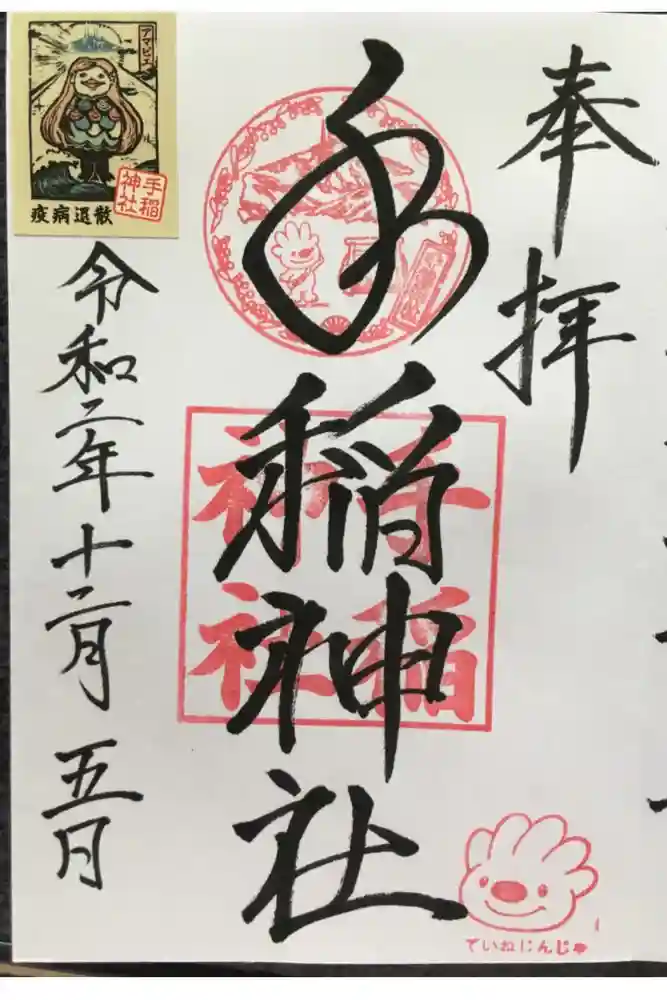 奉拝
手稲神社
手稲神社
令和二年十二月五日
アマビエ
手稲神社
疫病退散
ていねじんじゃ